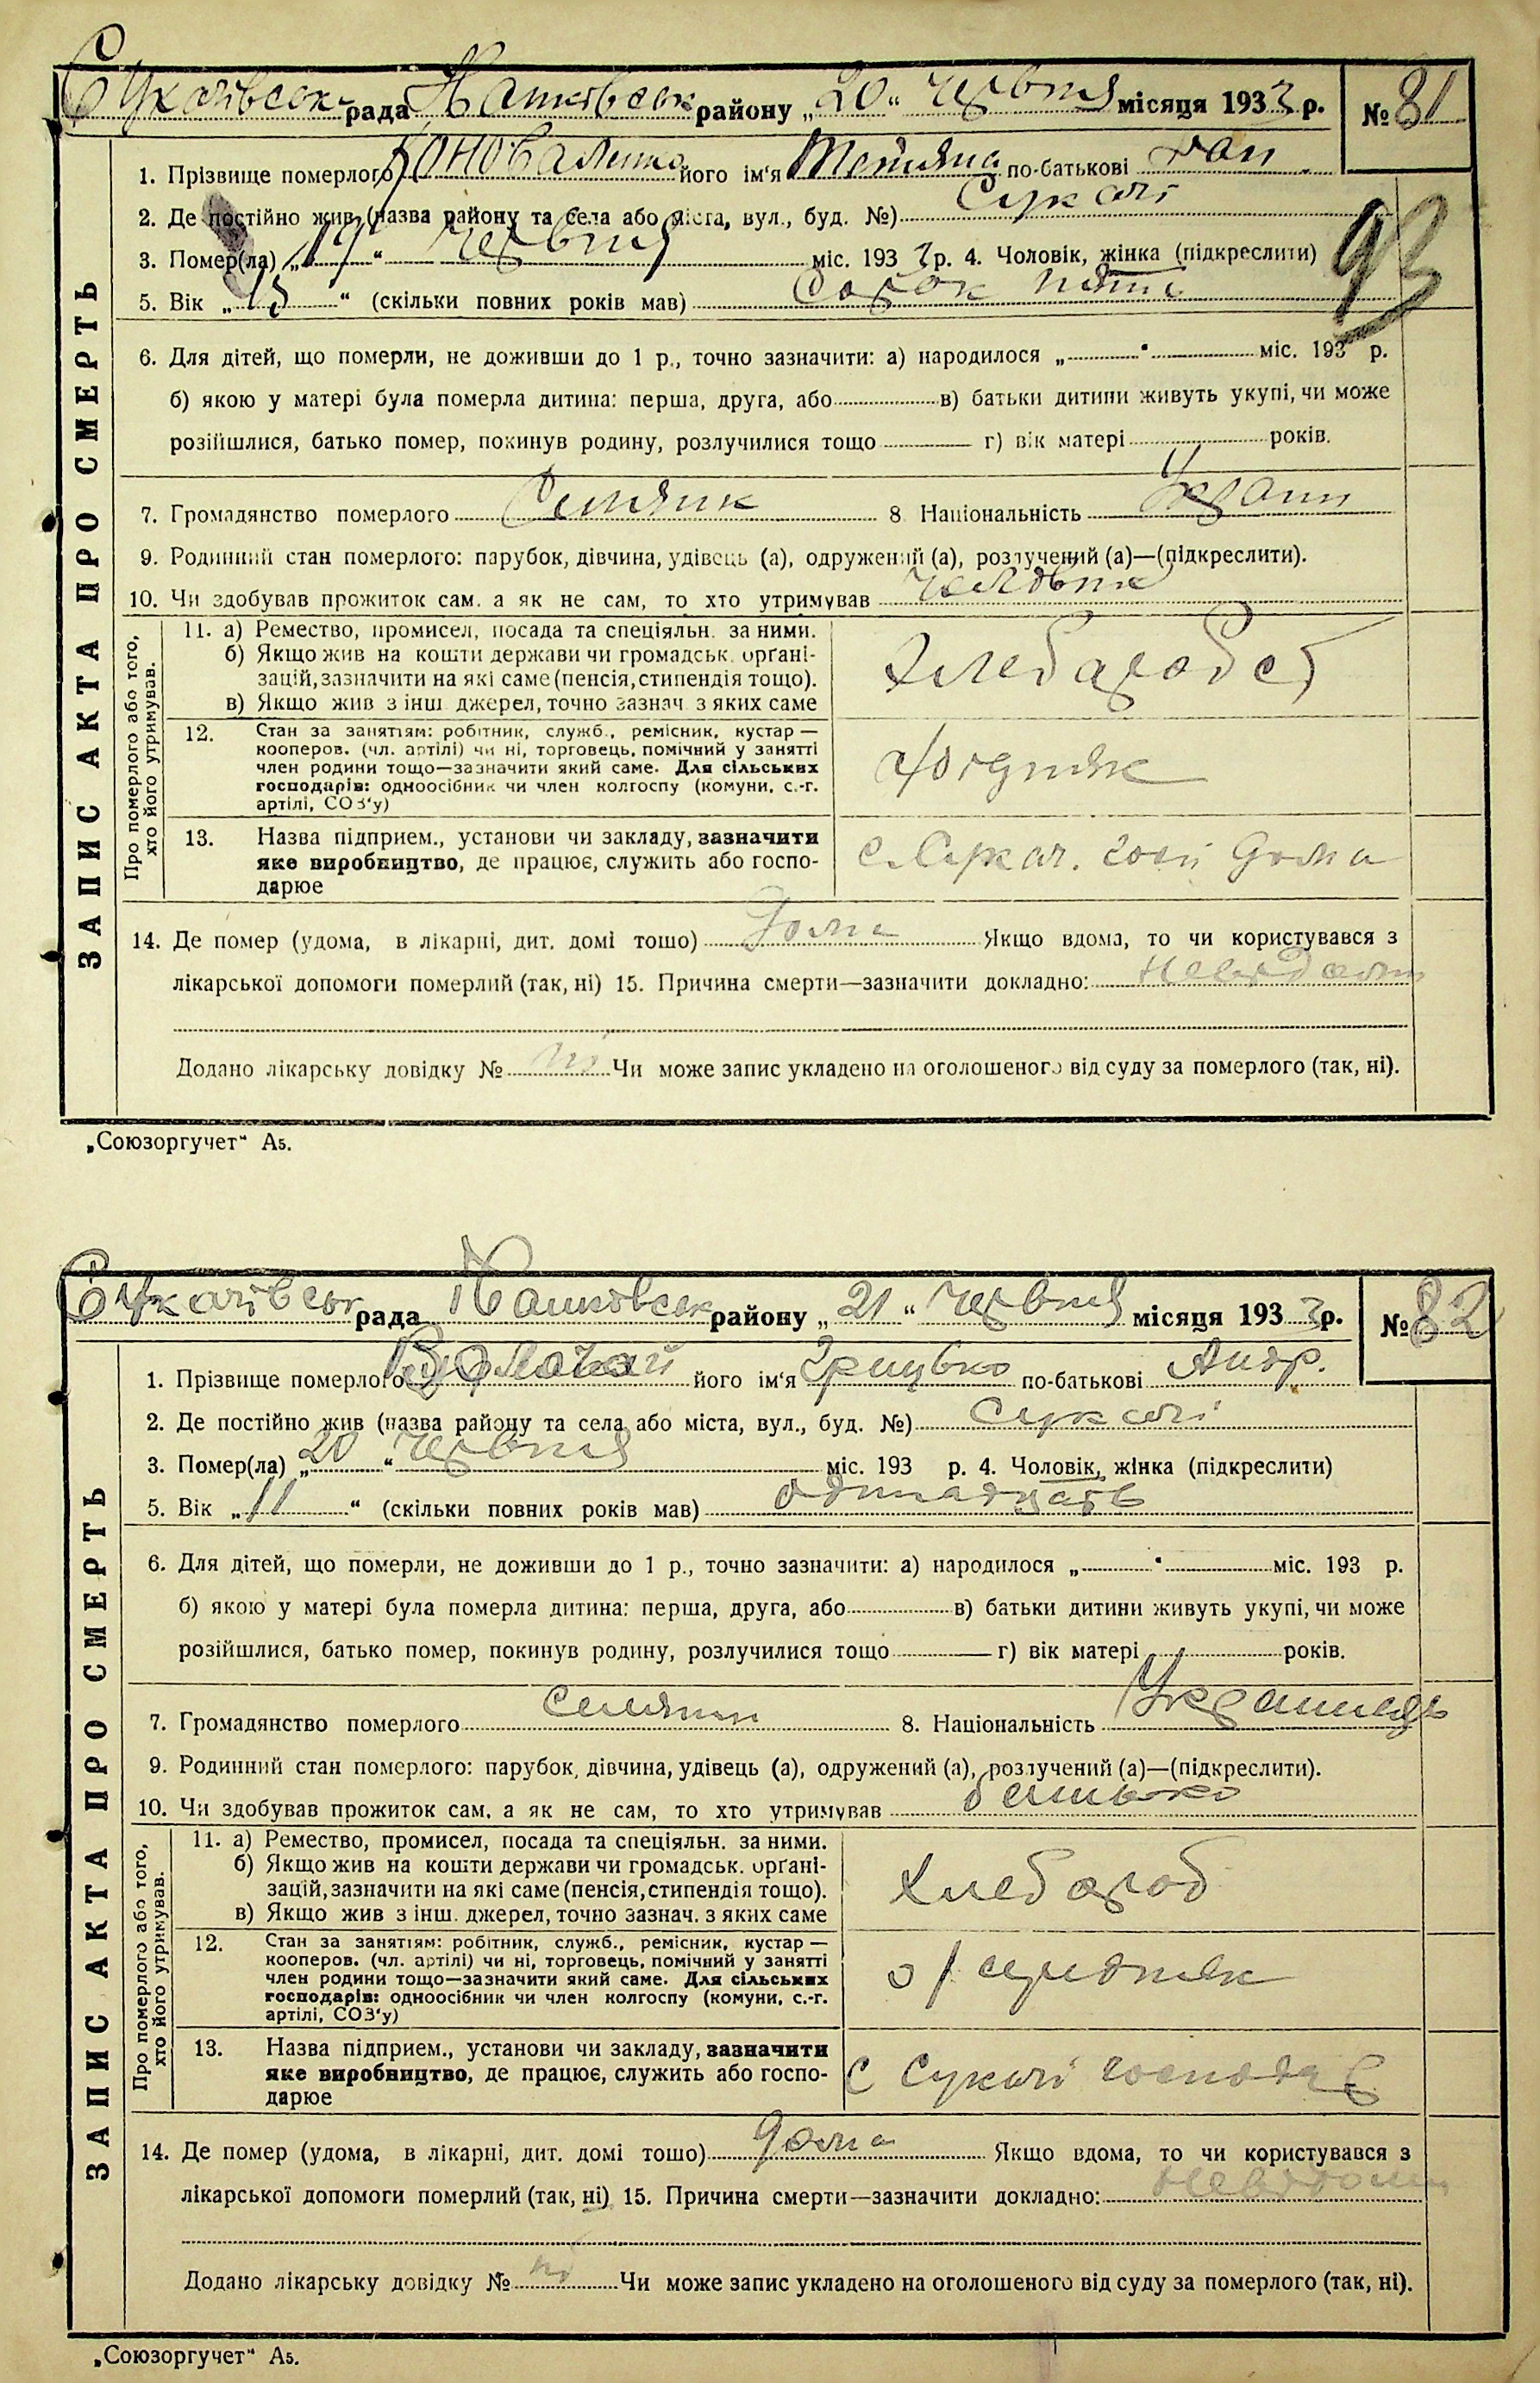 Сукачівськ рада Іванківськ району „20“ червня місяця 1933 р. № 81
1. Прізвище померлого Коноваленко його ім'я Тетяна по-батькові
2. Де постійно жив (назва району та села або міста, вул., буд. №) Сукачі
3. Помер(ла) „19“ червня міс. 1933 р. 4. Чоловік, жінка (підкреслити)
93
5. Вік „45“ (скільки повних років мав) сорок пять
6. Для дітей, що померли, не доживши до 1 р., точно зазначити: а) народилося „ “ міс. 193 р.
б) якою у матері була померла дитина: перша, друга, або в) батьки дитини живуть укупі, чи може
розійшлися, батько помер, покинув родину, розлучилися тощо г) вік матері років.
7. Громадянство померлого 8 Національність Украин
9. Родинний стан померлого: парубок, дівчина, удівець (а), одружений (а), розлучений (а)—(підкреслити).
10. Чи здобував прожиток сам, а як не сам, то хто утримував
ЗАПИС АКТА ПРО СМЕРТЬ
Про померлого або того, хто його утримував.
11. а) Ремество, промисел, посада та спеціяльн. за ними.
б) Якщо жив на кошти держави чи громадськ. орґані-
зацій, зазначити на які саме (пенсія, стипендія тощо).
в) Якщо жив з інш. джерел, точно зазнач. з яких саме
12. Стан за занятіям: робітник, служб., ремісник, кустар —
кооперов. (чл. артілі) чи ні, торговець, помічний у занятті
член родини тощо—зазначити який саме. Для сільських
господарів: одноосібник чи член колгоспу (комуни, с.-г.
артілі, СОЗ'у)
13. Назва підприєм., установи чи закладу, зазначити
яке виробництво, де працює, служить або госпо-
дарює
с. Сукач. госп дома
14. Де помер (удома, в лікарні, дит. домі тощо) дома Якщо вдома, то чи користувався з
лікарської допомоги померлий (так, ні) 15. Причина смерти—зазначити докладно: невідома
Додано лікарську довідку № ні Чи може запис укладено на оголошеного від суду за померлого (так, ні).
„Союзоргучет“ А5.
Сукачівськ рада Іванківськ району „21“ червня місяця 1933 р. № 82
1. Прізвище померлого його ім'я Грицько по-батькові Андр.
2. Де постійно жив (назва району та села або міста, вул., буд. №) Сукачі
3. Помер(ла) „20“ червня міс. 193 р. 4. Чоловік, жінка (підкреслити)
5. Вік „11“ (скільки повних років мав) одинадцять
6. Для дітей, що померли, не доживши до 1 р., точно зазначити: а) народилося „ “ міс. 193 р.
б) якою у матері була померла дитина: перша, друга, або в) батьки дитини живуть укупі, чи може
розійшлися, батько помер, покинув родину, розлучилися тощо г) вік матері років.
7. Громадянство померлого селянин 8. Національність Украинець
9. Родинний стан померлого: парубок, дівчина, удівець (а), одружений (а), розлучений (а)—(підкреслити).
10. Чи здобував прожиток сам, а як не сам, то хто утримував батько
ЗАПИС АКТА ПРО СМЕРТЬ
Про померлого або того, хто його утримував.
11. а) Ремество, промисел, посада та спеціяльн. за ними.
б) Якщо жив на кошти держави чи громадськ. орґані-
зацій, зазначити на які саме (пенсія, стипендія тощо).
в) Якщо жив з інш. джерел, точно зазнач. з яких саме
хлебароб
12. Стан за занятіям: робітник, служб., ремісник, кустар —
кооперов. (чл. артілі) чи ні, торговець, помічний у занятті
член родини тощо—зазначити який саме. Для сільських
господарів: одноосібник чи член колгоспу (комуни, с.-г.
артілі, СОЗ'у)
13. Назва підприєм., установи чи закладу, зазначити
яке виробництво, де працює, служить або госпо-
дарює
с Сукачі господар
14. Де помер (удома, в лікарні, дит. домі тощо) дома Якщо вдома, то чи користувався з
лікарської допомоги померлий (так, ні) 15. Причина смерти—зазначити докладно: невідома
Додано лікарську довідку № ні Чи може запис укладено на оголошеного від суду за померлого (так, ні).
„Союзоргучет“ А5.